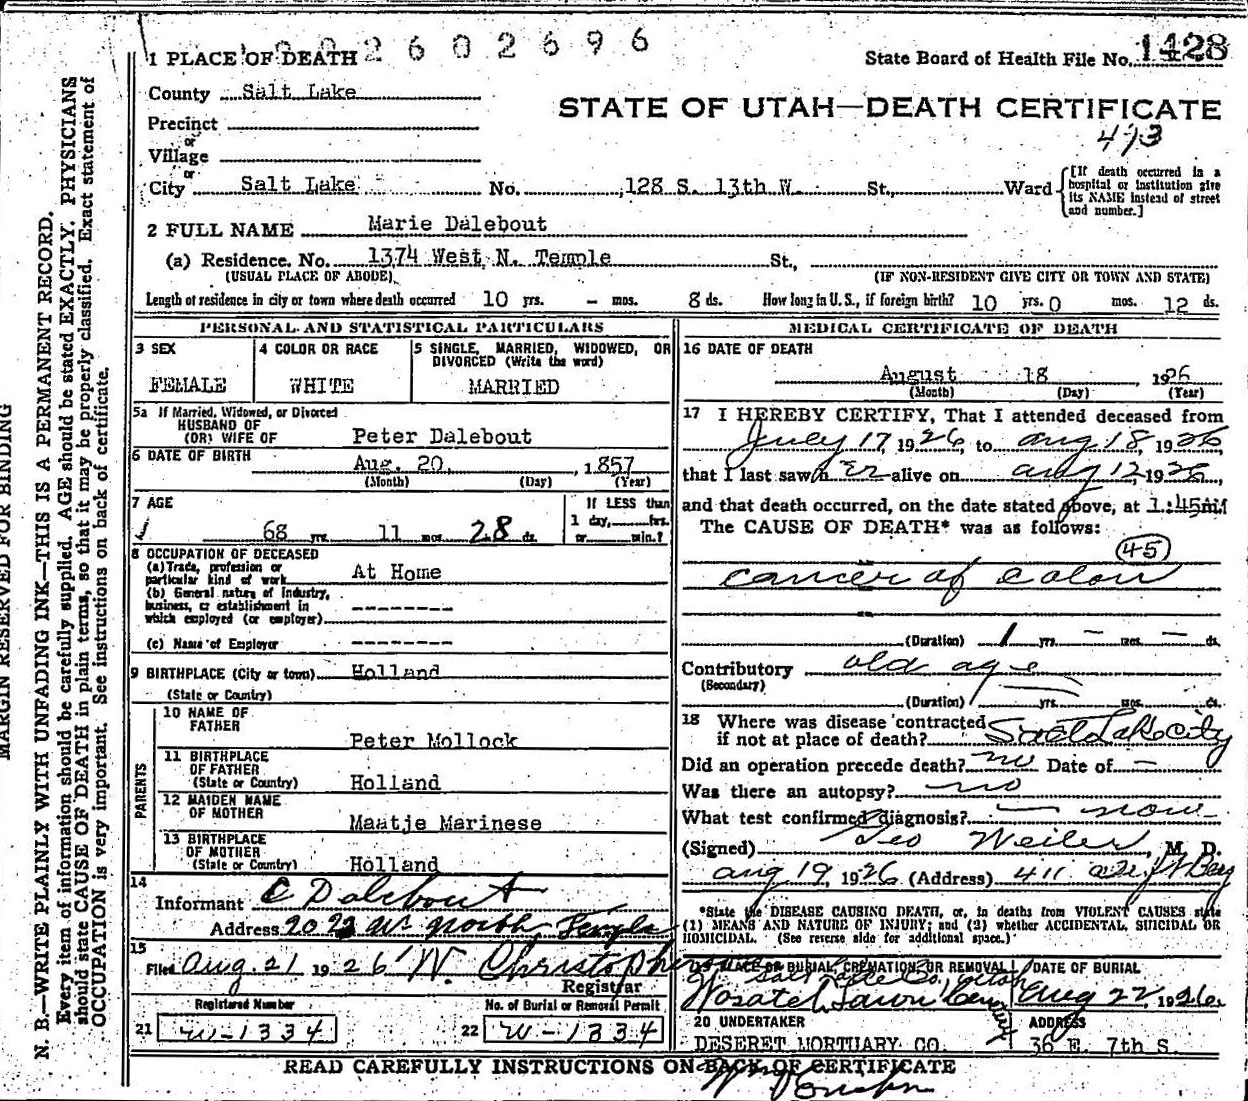 2 6 0 2 6 9 6
1 PLACE OF DEATH
State Board of Health File No. 1428
County Salt Lake
STATE OF UTAH—DEATH CERTIFICATE
Precinct
or
Village
or
City Salt Lake No. 128 S. 13th W. St., Ward
[If death occurred in a hospital or institution give its NAME instead of street and number.]
2 FULL NAME Marie Dalebout
(a) Residence. No. 1374 West N. Temple St.,
(USUAL PLACE OF ABODE) (IF NON-RESIDENT GIVE CITY OR TOWN AND STATE)
Length of residence in city or town where death occurred 10 yrs. – mos. 8 ds. How long in U. S., if foreign birth? 10 yrs. 0 mos. 12 ds.
PERSONAL AND STATISTICAL PARTICULARS
3 SEX
FEMALE
4 COLOR OR RACE
WHITE
5 SINGLE, MARRIED, WIDOWED, OR
DIVORCED (Write the word)
MARRIED
5a If Married, Widowed, or Divorced
HUSBAND OF
(OR) WIFE OF Peter Dalebout
6 DATE OF BIRTH
Aug. 20, 1857
(Month) (Day) (Year)
7 AGE
68 yrs. 11 mos. 28 ds.
If LESS than
1 day, hrs.
or min.?
8 OCCUPATION OF DECEASED
(a) Trade, profession or
particular kind of work At Home
(b) General nature of Industry,
business, or establishment in
which employed (or employer)
(c) Name of Employer
9 BIRTHPLACE (City or town) Holland
(State or Country)
PARENTS
10 NAME OF
FATHER
Peter Mollock
11 BIRTHPLACE
OF FATHER
(State or Country) Holland
12 MAIDEN NAME
OF MOTHER
Maatje Marinese
13 BIRTHPLACE
OF MOTHER
(State or Country) Holland
14
Informant C Dalebout
Address 2023 W. North Temple
15
Filed Aug. 21 1926 W Christopherson
Registrar
Registered Number No. of Burial or Removal Permit
21 W-1334 22 W-1334
MEDICAL CERTIFICATE OF DEATH
16 DATE OF DEATH
August 18, 1926
(Month) (Day) (Year)
17 I HEREBY CERTIFY, That I attended deceased from
July 17, 1926, to Aug 18, 1926
that I last saw h er alive on Aug 12, 1926,
and that death occurred, on the date stated above, at 1:45
The CAUSE OF DEATH* was as follows:
45
Cancer of Colon
(Duration) 1 yrs. – mos. – ds.
Contributory old age
(Secondary)
(Duration) yrs. mos. ds.
18 Where was disease contracted
if not at place of death? Salt Lake City
Did an operation precede death? no Date of –
Was there an autopsy? no
What test confirmed diagnosis?
(Signed) Geo Weiler, M. D.
Aug 19, 1926 (Address) 411
*State the DISEASE CAUSING DEATH, or, in deaths from VIOLENT CAUSES state
(1) MEANS AND NATURE OF INJURY; and (2) whether ACCIDENTAL, SUICIDAL OR
HOMICIDAL. (See reverse side for additional space.)
19 PLACE OF BURIAL, CREMATION, OR REMOVAL DATE OF BURIAL
Salt Lake Co, Utah
Wasatch Lawn Cemetery Aug 22, 1926
20 UNDERTAKER ADDRESS
DESERET MORTUARY CO. 36 E. 7th S.
READ CAREFULLY INSTRUCTIONS ON BACK OF CERTIFICATE
MARGIN RESERVED FOR BINDING
N. B.—WRITE PLAINLY WITH UNFADING INK—THIS IS A PERMANENT RECORD.
Every item of information should be carefully supplied. AGE should be stated EXACTLY. PHYSICIANS
should state CAUSE OF DEATH in plain terms, so that it may be properly classified. Exact statement of
OCCUPATION is very important. See instructions on back of certificate.